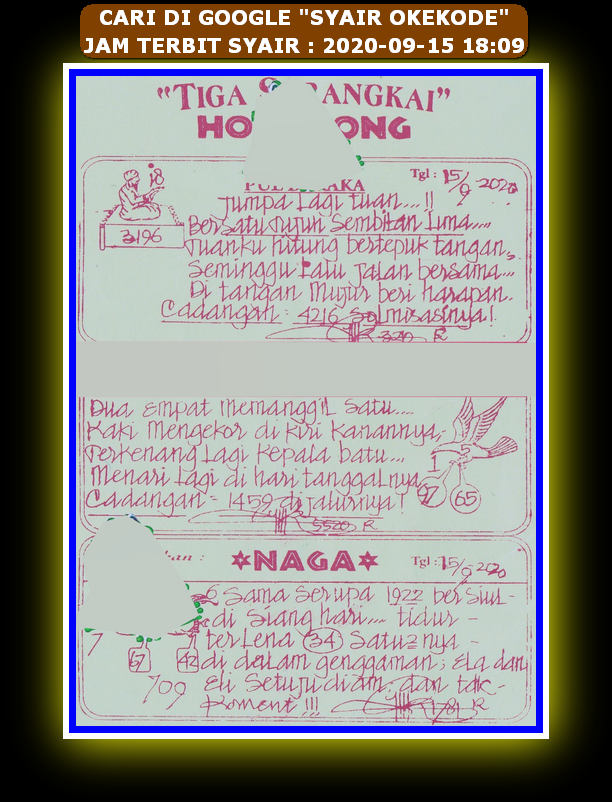 CARI DI GOOGLE "SYAIR OKEKODE"
JAM TERBIT SYAIR : 2020-09-15 18:09
"TIGA RANGKAI"
HO ONG
Tgl : 15/9 2020
18
3196
Jumpa Lagi tuan...!!
Bersatu tujuh Sembilan Lima....
Tuanku hitung bertepuk tangan,
Seminggu Lalu jalan bersama...
Di tangan Mujur beri harapan.
Cadangan = 4216 Salmisasinya!
329 R
Dua Empat Memanggil Satu....
Kaki Mengekor di kiri kanannya,
Terkenang Lagi Kepala batu...
Menari Lagi di hari tanggalnya
Cadangan = 1459 di jalurnya!
5
1
97 65
5520 R
kan :
NAGA
Tgl : 15/9 2020
6 Sama Serupa 1922 bersiul-
di Siang hari.... tidur -
terlena 34 Satu2nya -
di dalam genggaman; Ela dan
Eli Setuju diam dan tak-
Koment !!!
7
67
42
709
1781 R